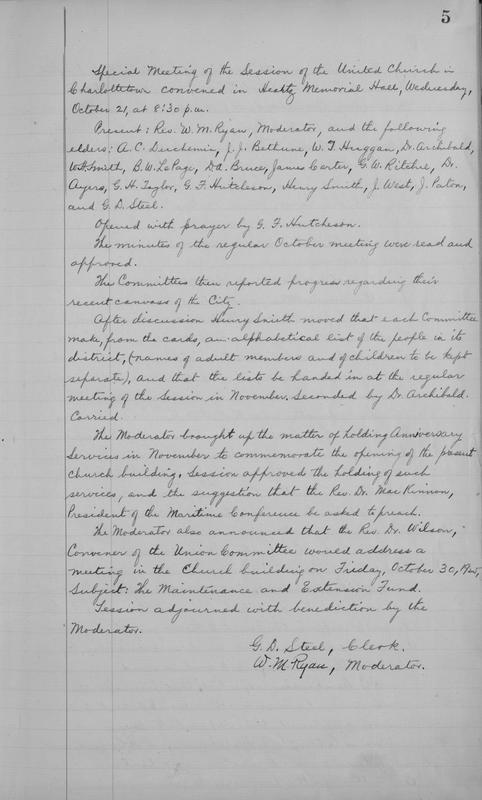 5
Special Meeting of the Session of the United Church in
Charlottetown convened in Heartz Memorial Hall, Wednesday,
October 21, at 8:30 p.m.
Present: Rev. W. M. Ryan, Moderator, and the following
elders: A. C. Duchemin, J. J. Bethune, W. T. Huggan, Dr. Archibald,
Smith, B. W. LePage, Bruce, James Carter, G. W. Ritchie, Dr.
Ayers, G. H. Taylor, G. F. Hutcheson, Henry Smith, J. West, J. Paton,
and G. D. Steel.
Opened with prayer by G. F. Hutcheson.
The minutes of the regular October meeting were read and
approved.
The Committees then reported progress regarding their
recent canvass of the City.
After discussion Henry Smith moved that each Committee
make, from the cards, an alphabetical list of the people in its
district, (names of adult members and of children to be kept
separate), and that the lists be handed in at the regular
meeting of the Session in November. Seconded by Dr. Archibald.
Carried.
The Moderator brought up the matter of holding Anniversary
Services in November to commemorate the opening of the present
church building. Session approved the holding of such
services, and the suggestion that the Rev. Dr. MacKinnon,
President of the Maritime Conference be asked to preach.
The Moderator also announced that the Rev. Dr. Wilson,
Convener of the Union Committee would address a
meeting in the Church building on Friday, October 30,
Subject: The Maintenance and Extension Fund.
Session adjourned with benediction by the
Moderator.
G. D. Steel, Clerk.
W. M. Ryan, Moderator.